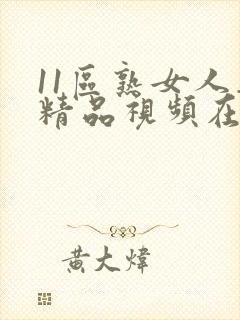 11區熟女人
精品視頻在
黃大煒